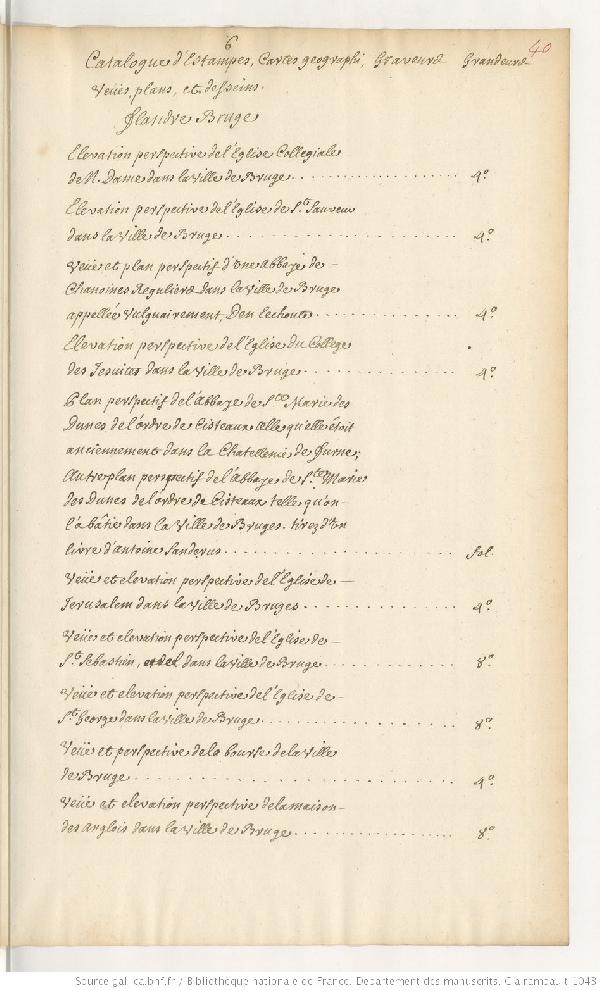 6
40
Catalogue d'Estampes, Cartes geographi, Graveurs Grandeurs
Veües, plans, et desseins.
Flandre Bruge
Elevation perspective de l'Eglise Collegiale
de N. Dame dans la Ville de Bruge 4º
Elevation perspective de l'Eglise de St Sauveur
dans la Ville de Bruge 4º
Veüe et plan perspectif d'Une Abbaye de
Chanoines Reguliers dans la Ville de Bruge
appellée Vulguairement, Den Eechoutte 4º
Elevation perspective de l'Eglise du College
des Jesuites dans la Ville de Bruge 4º
Plan perspectif de l'Abbaye de Ste Marie des
Dunes de l'ordre de Cisteaux telle qu'elle étoit
anciennement dans la Chatellenie de Furne;
Autre plan perspectif de l'Abbaye de Ste Marie
des Dunes de l'ordre de Cisteaux telle qu'on
l'a bâtie dans la Ville de Bruges. tirez d'Un
livre d'antoine Sanderus fol.
Veüe et elevation perspective de l'Eglise de
Jerusalem dans la Ville de Bruges 4º
Veüe et elevation perspective de l'Eglise de
St Sebastien, dans la Ville de Bruge 8º
Veüe et elevation perspective de l'Eglise de
St George dans la Ville de Bruge 8º
Veüe et perspective de la bourse de la Ville
de Bruge 4º
Veüe et elevation perspective de la maison
des Anglois dans la Ville de Bruge 8º
Source gallica.bnf.fr / Bibliothèque nationale de France. Département des manuscrits. Clairambault 1048